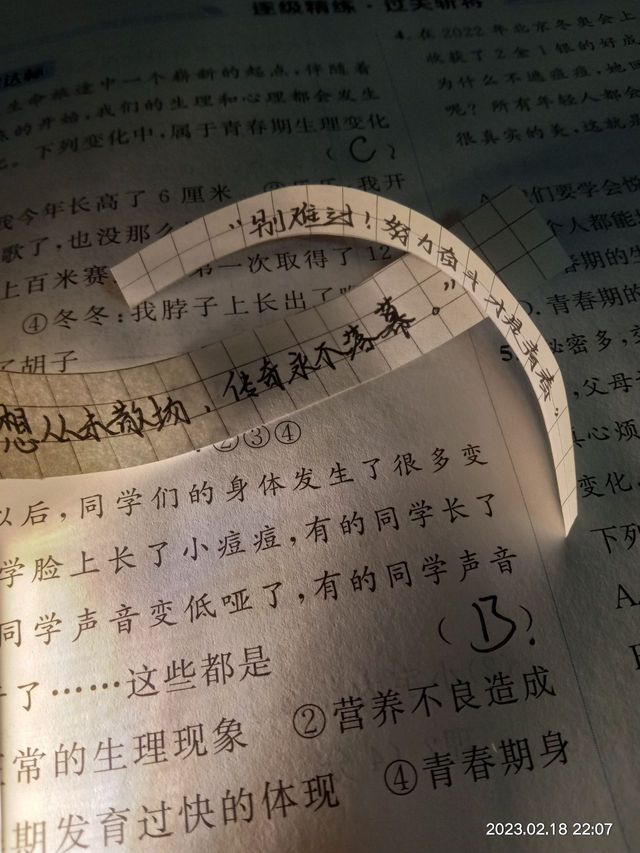 逐级精练·过关斩将
达标
生命旅途中一个崭新的起点,伴随着
的开始,我们的生理和心理都会发生
下列变化中,属于青春期生理变化
(C)
我今年长高了 6 厘米
我开
歌了,也没那么
上百米赛
一次取得了 12
④冬冬:我脖子上长出了
了胡子
"别难过!努力奋斗才是青春。
想从未散场,传奇永不落幕。"
②③④
以后,同学们的身体发生了很多变
学脸上长了小痘痘,有的同学长了
同学声音变低哑了,有的同学声音
了……这些都是
(B)
常的生理现象 ②营养不良造成
期发育过快的体现 ④青春期身
4. 在 2022 年北京冬奥会上
收获了 2 金 1 银的好成
为什么不遮痘痘,她回
呢?所有年轻人都会
很真实的美,这就是
们要学会悦
个人都能
春期的生
. 青春期的
5
秘密多,
父母
心烦
变化,
下列
A
2023.02.18 22:07